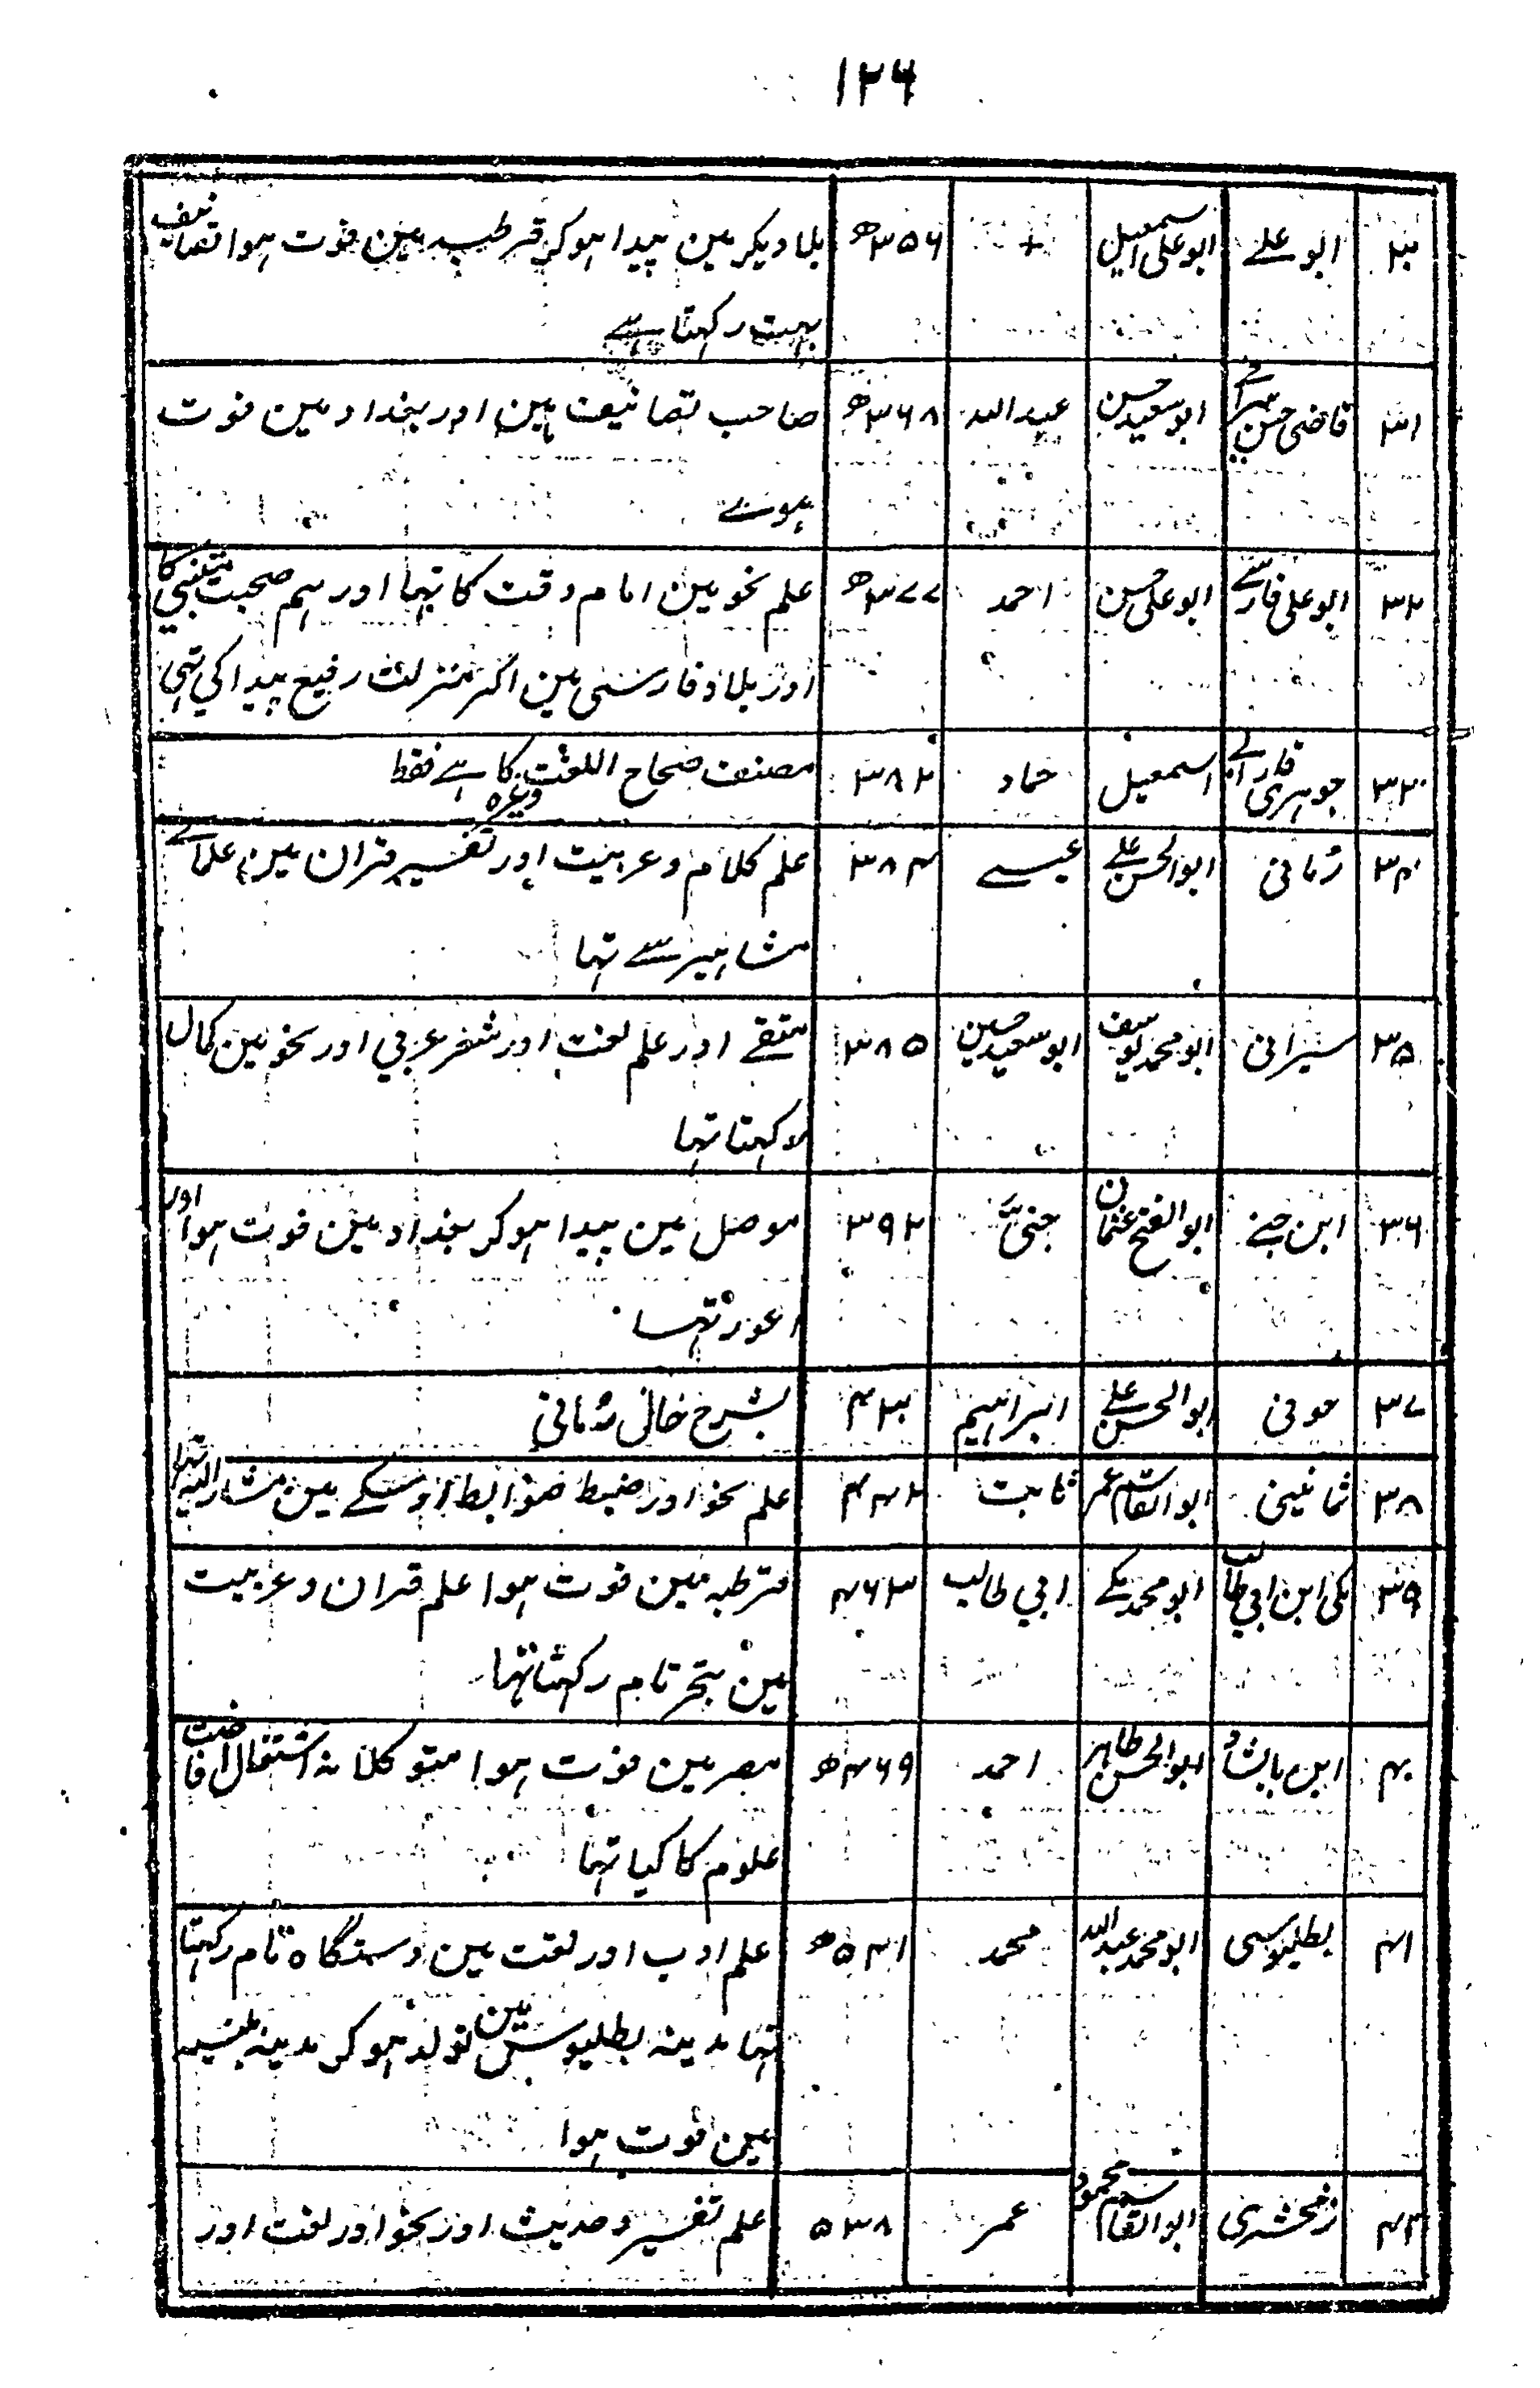 ۱۲۶
۳۰ ابو علے ابو علی اسمعیل + ۳۵۶ھ بلاد بکر مین پیدا ہوکر قرطبہ مین فوت ہوا تصانیف
بہت رکہتا ہے
۳۱ قاضی حسن سیرافے ابو سعید حسن عبد اللہ ۳۶۸ھ صاحب تصانیف ہین اور بغداد مین فوت
ہوئے
۳۲ ابو علی فارسے ابو علی حسن احمد ۳۷۷ھ علم نحو مین امام وقت کا تہا اور ہم صحبت متنبی کا
اور بلاد فارس مین اکثر منزلت رفیع پیدا کی تہی
۳۳ جوہری فارابے اسمعیل حماد ۳۸۲ مصنف صحاح اللغت وغیرہ کا ہے فقط
۳۴ رُمانی ابو الحسن علے عیسے ۳۸۴ علم کلام و عربیت اور تفسیر قران مین علمائے
مشاہیر سے تہا
۳۵ سیرافی ابو محمد یوسف ابو سعید حسین ۳۸۵ متقے اور علم لغت اور شعر عربی اور نحو مین کمال
رکہتا تہا
۳۶ ابن جنے ابو الفتح عثمان جنی ۳۹۲ موصل مین پیدا ہوکر بغداد مین فوت ہوا اور
اعور تہا
۳۷ حوفی ابو الحسن علے ابراہیم ۴۳۰ بشرح خالی رُمانی
۳۸ ثمانینی ابو القاسم عمر ثابت ۴۴۲ علم نحو اور ضبط ضوابط اوسکے مین مشار الیہ تہا
۳۹ مکی ابن ابی طالب ابو محمد مکے ابی طالب ۴۶۳ قرطبہ مین فوت ہوا علم قران و عربیت
مین تبحر تام رکہتا تہا
۴۰ ابن بابشاد ابو الحسن طاہر احمد ۴۶۹ھ مصر مین فوت ہوا متوکلانہ اشتغال افاضت
علوم کا کیا تہا
۴۱ بطلیوسی ابو محمد عبد اللہ محمد ۵۴۱ھ علم ادب اور لغت مین دستگاہ تام رکہتا
تہا مدینہ بطلیوس مین تولد ہوکر مدینہ بلنسیہ
مین فوت ہوا
۴۲ زمخشری ابو القاسم محمود عمر ۵۳۸ علم تفسیر و حدیث اور نحو اور لغت اور